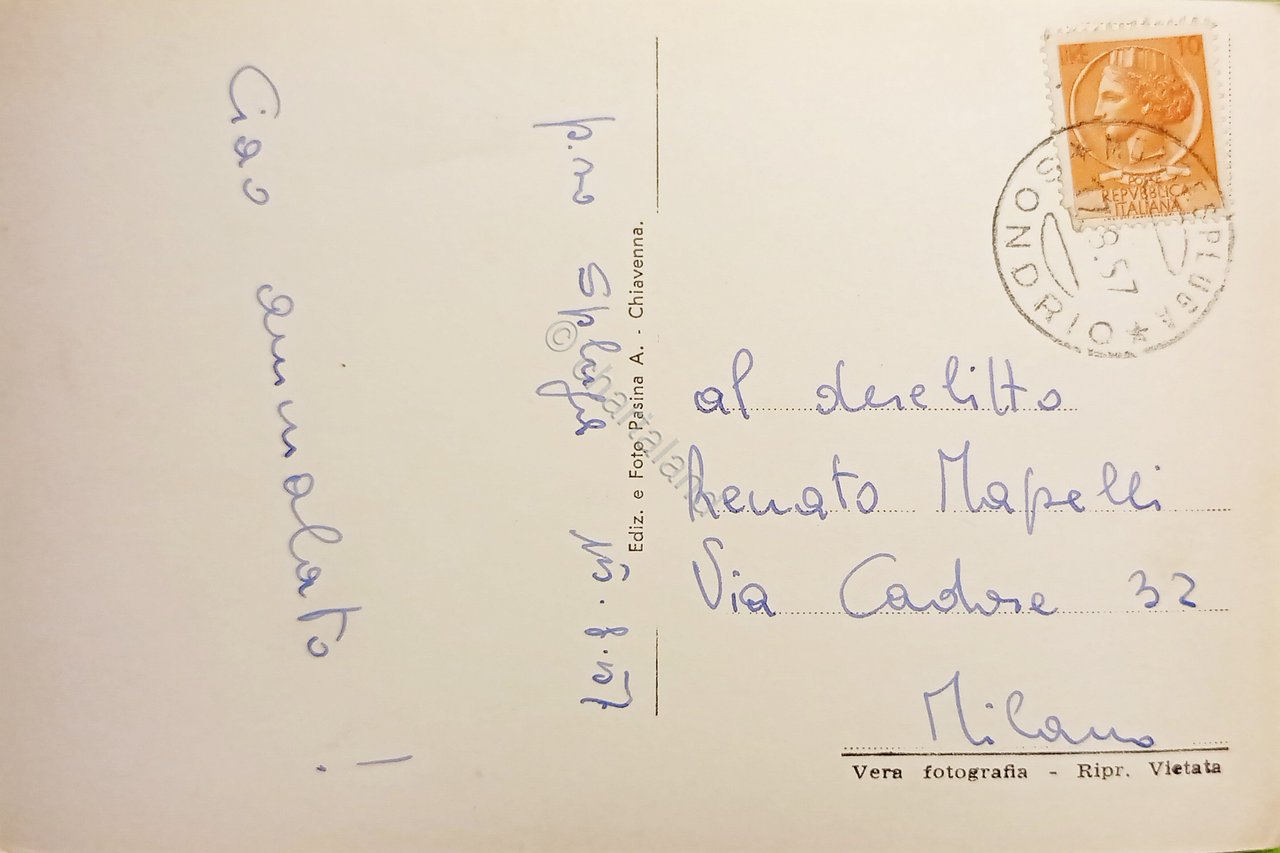 Ciao ammalato!
p.sso Spluga 15.8.57
Ediz. e Foto Pasina A. - Chiavenna.
LIRE 10
POSTE
REPVBBLICA
ITALIANA
SPLUGA
8.57
SONDRIO
al derelitto
Renato Mapelli
Via Cadore 32
Milano
Vera fotografia - Ripr. Vietata